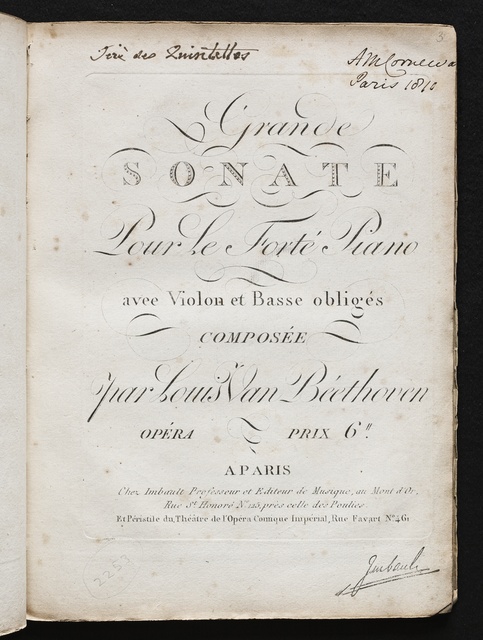 3
Tiré des Quintettes
Paris 1810
Grande
SONATE
Pour Le Forté Piano
avec Violon et Basse obligés
COMPOSÉE
par Louis Van Béethoven
OPÉRA PRIX 6.tt
A PARIS
Chez Imbault Professeur et Editeur de Musique, au Mont d'Or,
Rue St. Honoré No. 125, près celle des Poulies
Et Péristile du Théâtre de l'Opéra Comique Impérial, Rue Favart No. 461
2253
Imbault